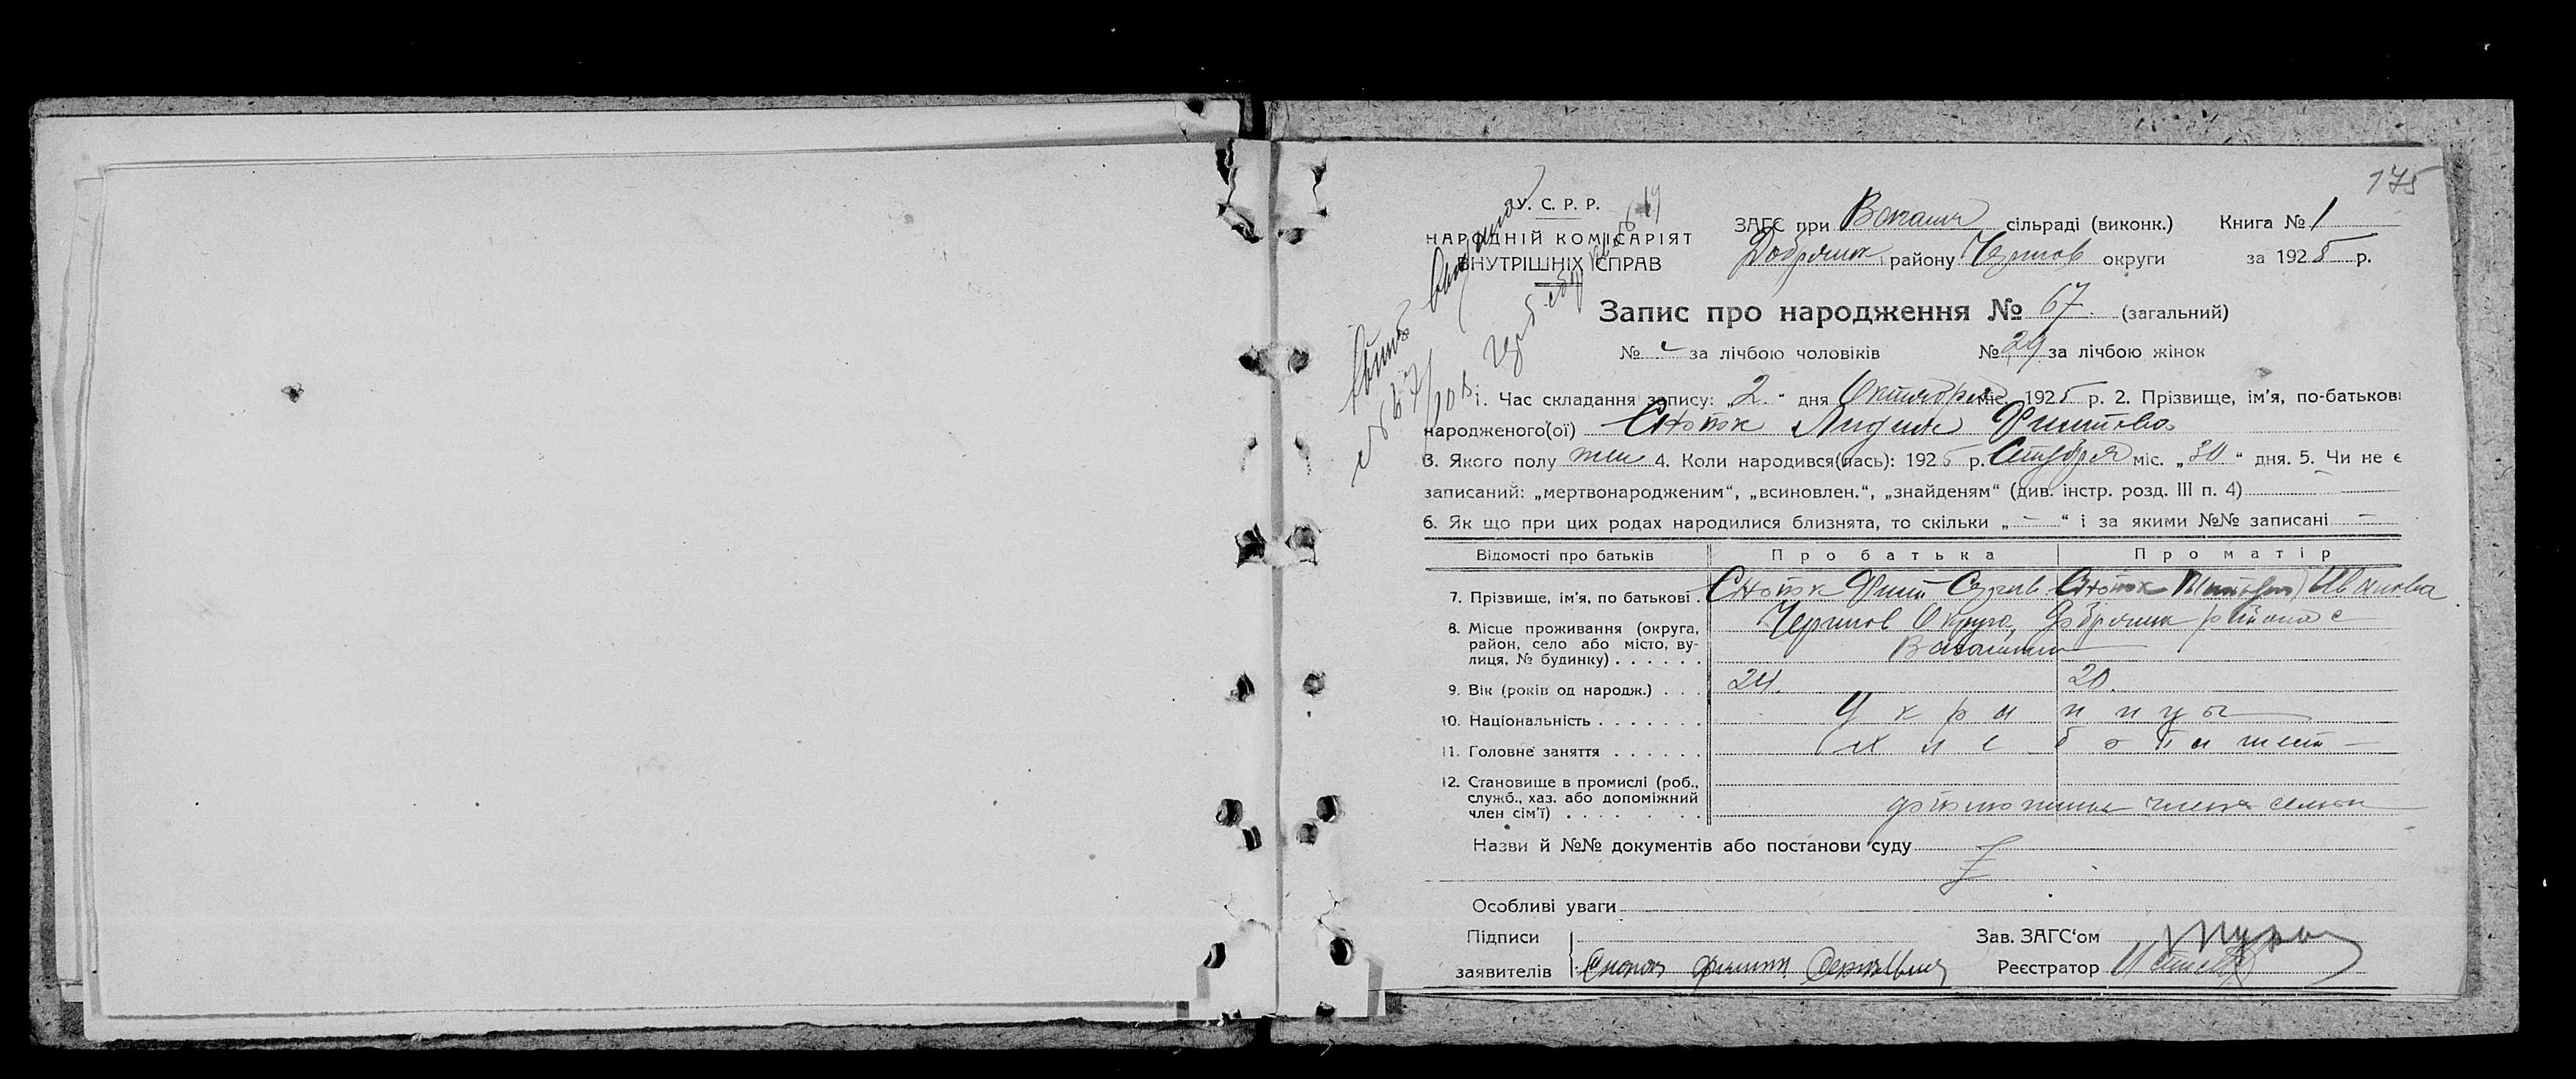 175
У. С. Р. Р.
НАРОДНІЙ КОМІСАРІЯТ
ВНУТРІШНІХ СПРАВ
ЗАГС при сільраді (виконк.) Книга № 1
району Черниг округи за 1925 р.
Запис про народження № 67. (загальний)
№ за лічбою чоловіків № 29 за лічбою жінок
1. Час складання запису: „2“ дня Октября міс. 1925 р. 2. Прізвище, ім'я, по-батькові
народженого(ої) Снопок Лидия Филипова
3. Якого полу жен 4. Коли народився(лась): 1925 р. Сентября міс. „30“ дня. 5. Чи не є
записаний: „мертвонародженим“, „всиновлен.“, „знайденям“ (див. інстр. розд. III п. 4)
6. Як що при цих родах народилися близнята, то скільки „ — “ і за якими №№ записані —
Відомості про батьків Про батька Про матір
7. Прізвище, ім'я, по батькові . Снопок Филип Сергеев Снопок Ивановна
8. Місце проживання (округа, район, село або місто, вулиця, № будинку) . . . . . . Округа, района с
9. Вік (років од народж.) . . . 24. 20.
10. Національність . . . . . . . Украинцы
11. Головне заняття . . . . . . хлебопашест —
12. Становище в промислі (роб., служб., хаз. або допоміжний член сім'ї) . . . . члена семьи
Назви й №№ документів або постанови суду
Особливі уваги
Підписи
заявителів Снопок Филипп Сергеевич
Зав. ЗАГС‘ом
Реєстратор